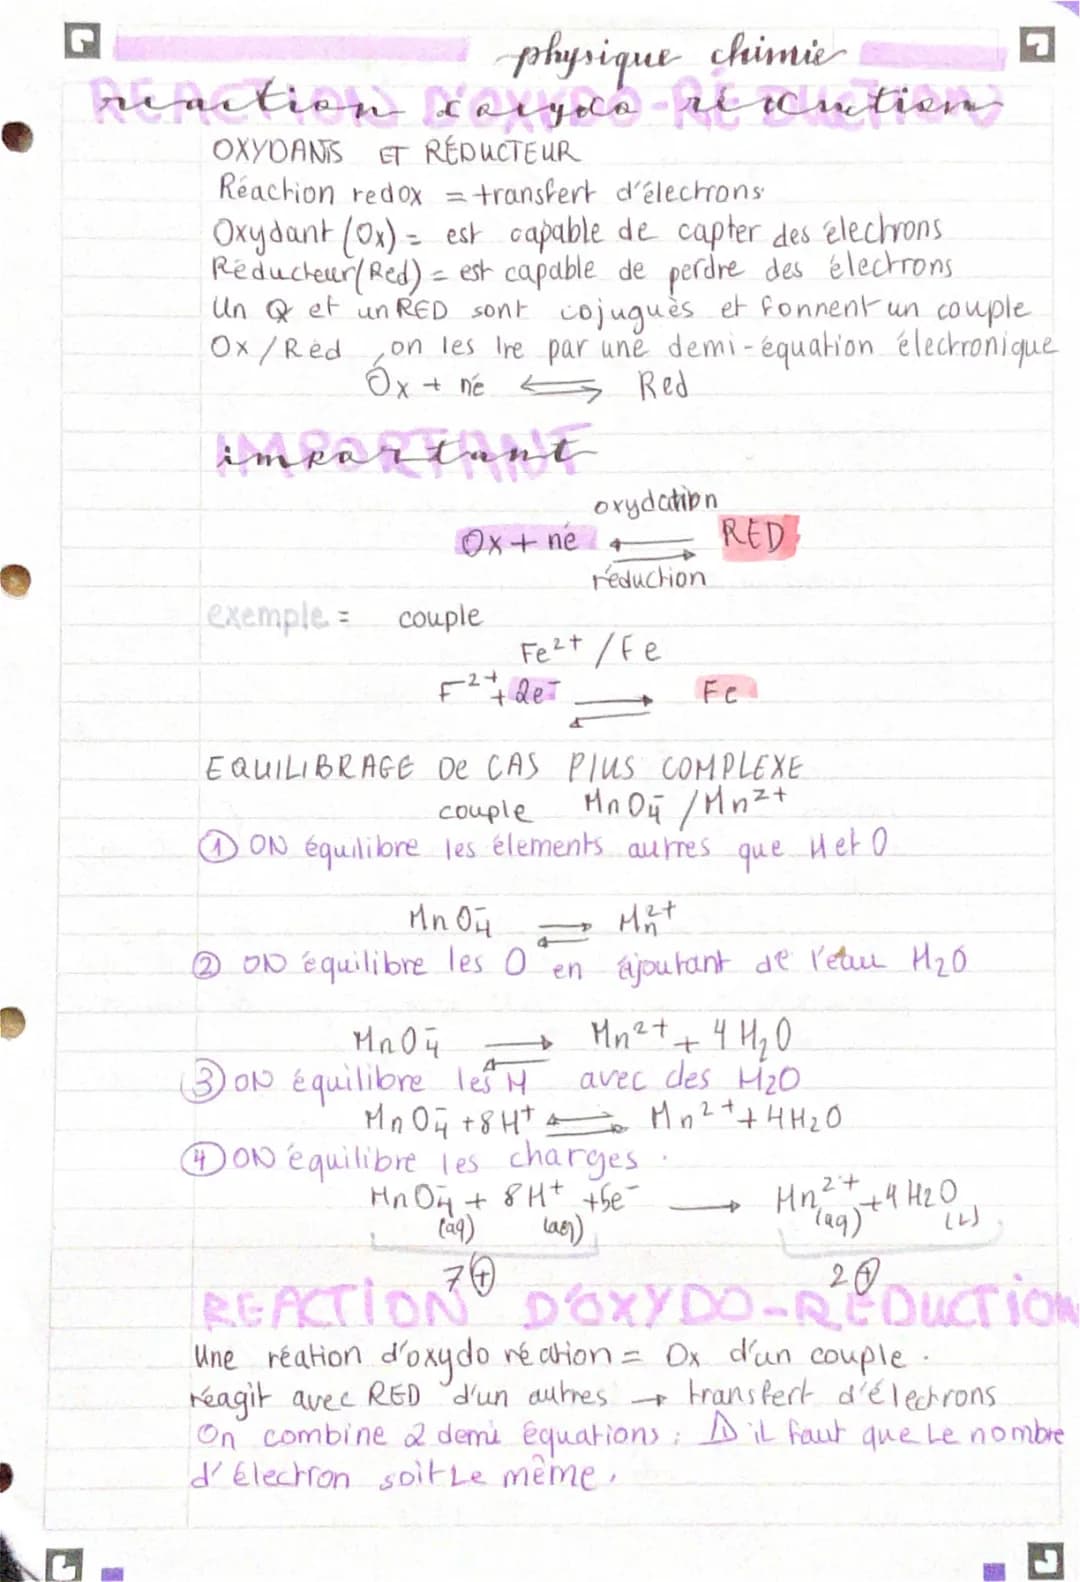 physique chimie
REACTION D'OXYDO-REDUCTION
OXYDANTS ET RÉDUCTEUR
Réaction redox = transfert d'électrons.
Oxydant (Ox) = est capable de capter des électrons
Réducteur (Red) = est capable de perdre des électrons
Un Ox et un RED sont cojugués et fonnent un couple
Ox / Red, on les lre par une demi-équation électronique
Ox + né ⇌ Red
IMPORTANT
important
oxydation
Ox + né ⇌ RED
réduction
exemple = couple
Fe²⁺ / Fe
F²⁺ + 2e⁻ ⇌ Fe
EQUILIBRAGE De CAS PlUS COMPLEXE
couple MnO₄⁻ / Mn²⁺
① ON équilibre les élements autres que H et O
MnO₄⁻ ⇌ Mn²⁺
② ON équilibre les O en ajoutant de l'eau H₂O
MnO₄⁻ ⇌ Mn²⁺ + 4 H₂O
③ ON équilibre les H avec des H₂O
MnO₄⁻ + 8H⁺ ⇌ Mn²⁺ + 4H₂O
④ ON équilibre les charges.
MnO₄⁻ + 8H⁺ + 5e⁻ → Mn²⁺ + 4 H₂O
(aq) (aq) (aq) (L)
7⊕ 2⊕
REACTION D'OXYDO-REDUCTION
Une réation d'oxydo réation = Ox d'un couple.
réagit avec RED d'un autres → transfert d'électrons
On combine 2 demi équations : ⚠ il faut que Le nombre
d'électron soit Le même.